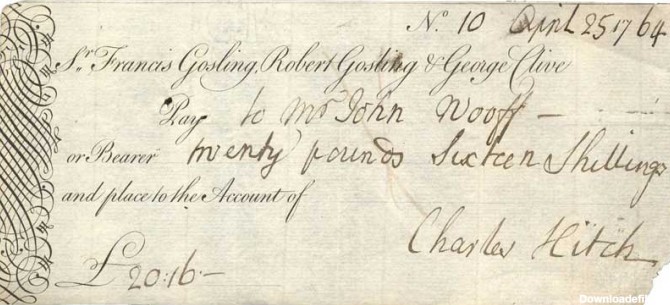 No. 10 April 25 1764
Sr. Francis Gosling, Robert Gosling & George Clive
Pay to Mr John Wooff —
or Bearer twenty pounds Sixteen Shillings
and place to the Account of
Charles Hitch
£20:16:—